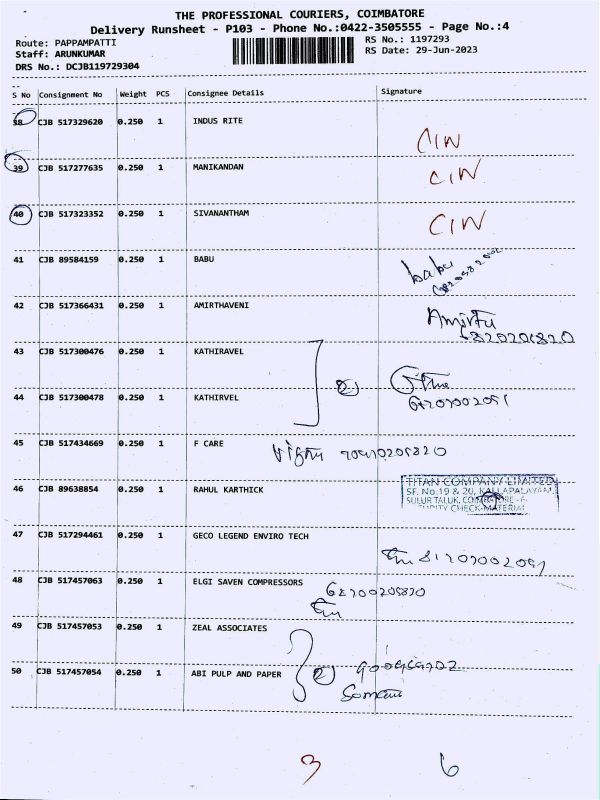 THE PROFESSIONAL COURIERS, COIMBATORE
Delivery Runsheet - P103 - Phone No.:0422-3505555 - Page No.:4
Route: PAPPAMPATTI RS No.: 1197293
Staff: ARUNKUMAR RS Date: 29-Jun-2023
DRS No.: DCJB119729304
S No Consignment No Weight PCS Consignee Details Signature
38 CJB 517329620 0.250 1 INDUS RITE
CIN
39 CJB 517277635 0.250 1 MANIKANDAN CIN
40 CJB 517323352 0.250 1 SIVANANTHAM CIN
41 CJB 89584159 0.250 1 BABU babu
42 CJB 517366431 0.250 1 AMIRTHAVENI
43 CJB 517300476 0.250 1 KATHIRAVEL
2
44 CJB 517300478 0.250 1 KATHIRVEL
45 CJB 517434669 0.250 1 F CARE
46 CJB 89638854 0.250 1 RAHUL KARTHICK
TITAN COMPANY LIMITED
SF. No.19 & 20, KALLAPALAYAM,
SULUR TALUK,
CHECK-MATERIAL
47 CJB 517294461 0.250 1 GECO LEGEND ENVIRO TECH
48 CJB 517457063 0.250 1 ELGI SAVEN COMPRESSORS
49 CJB 517457053 0.250 1 ZEAL ASSOCIATES
50 CJB 517457054 0.250 1 ABI PULP AND PAPER 2
3 6